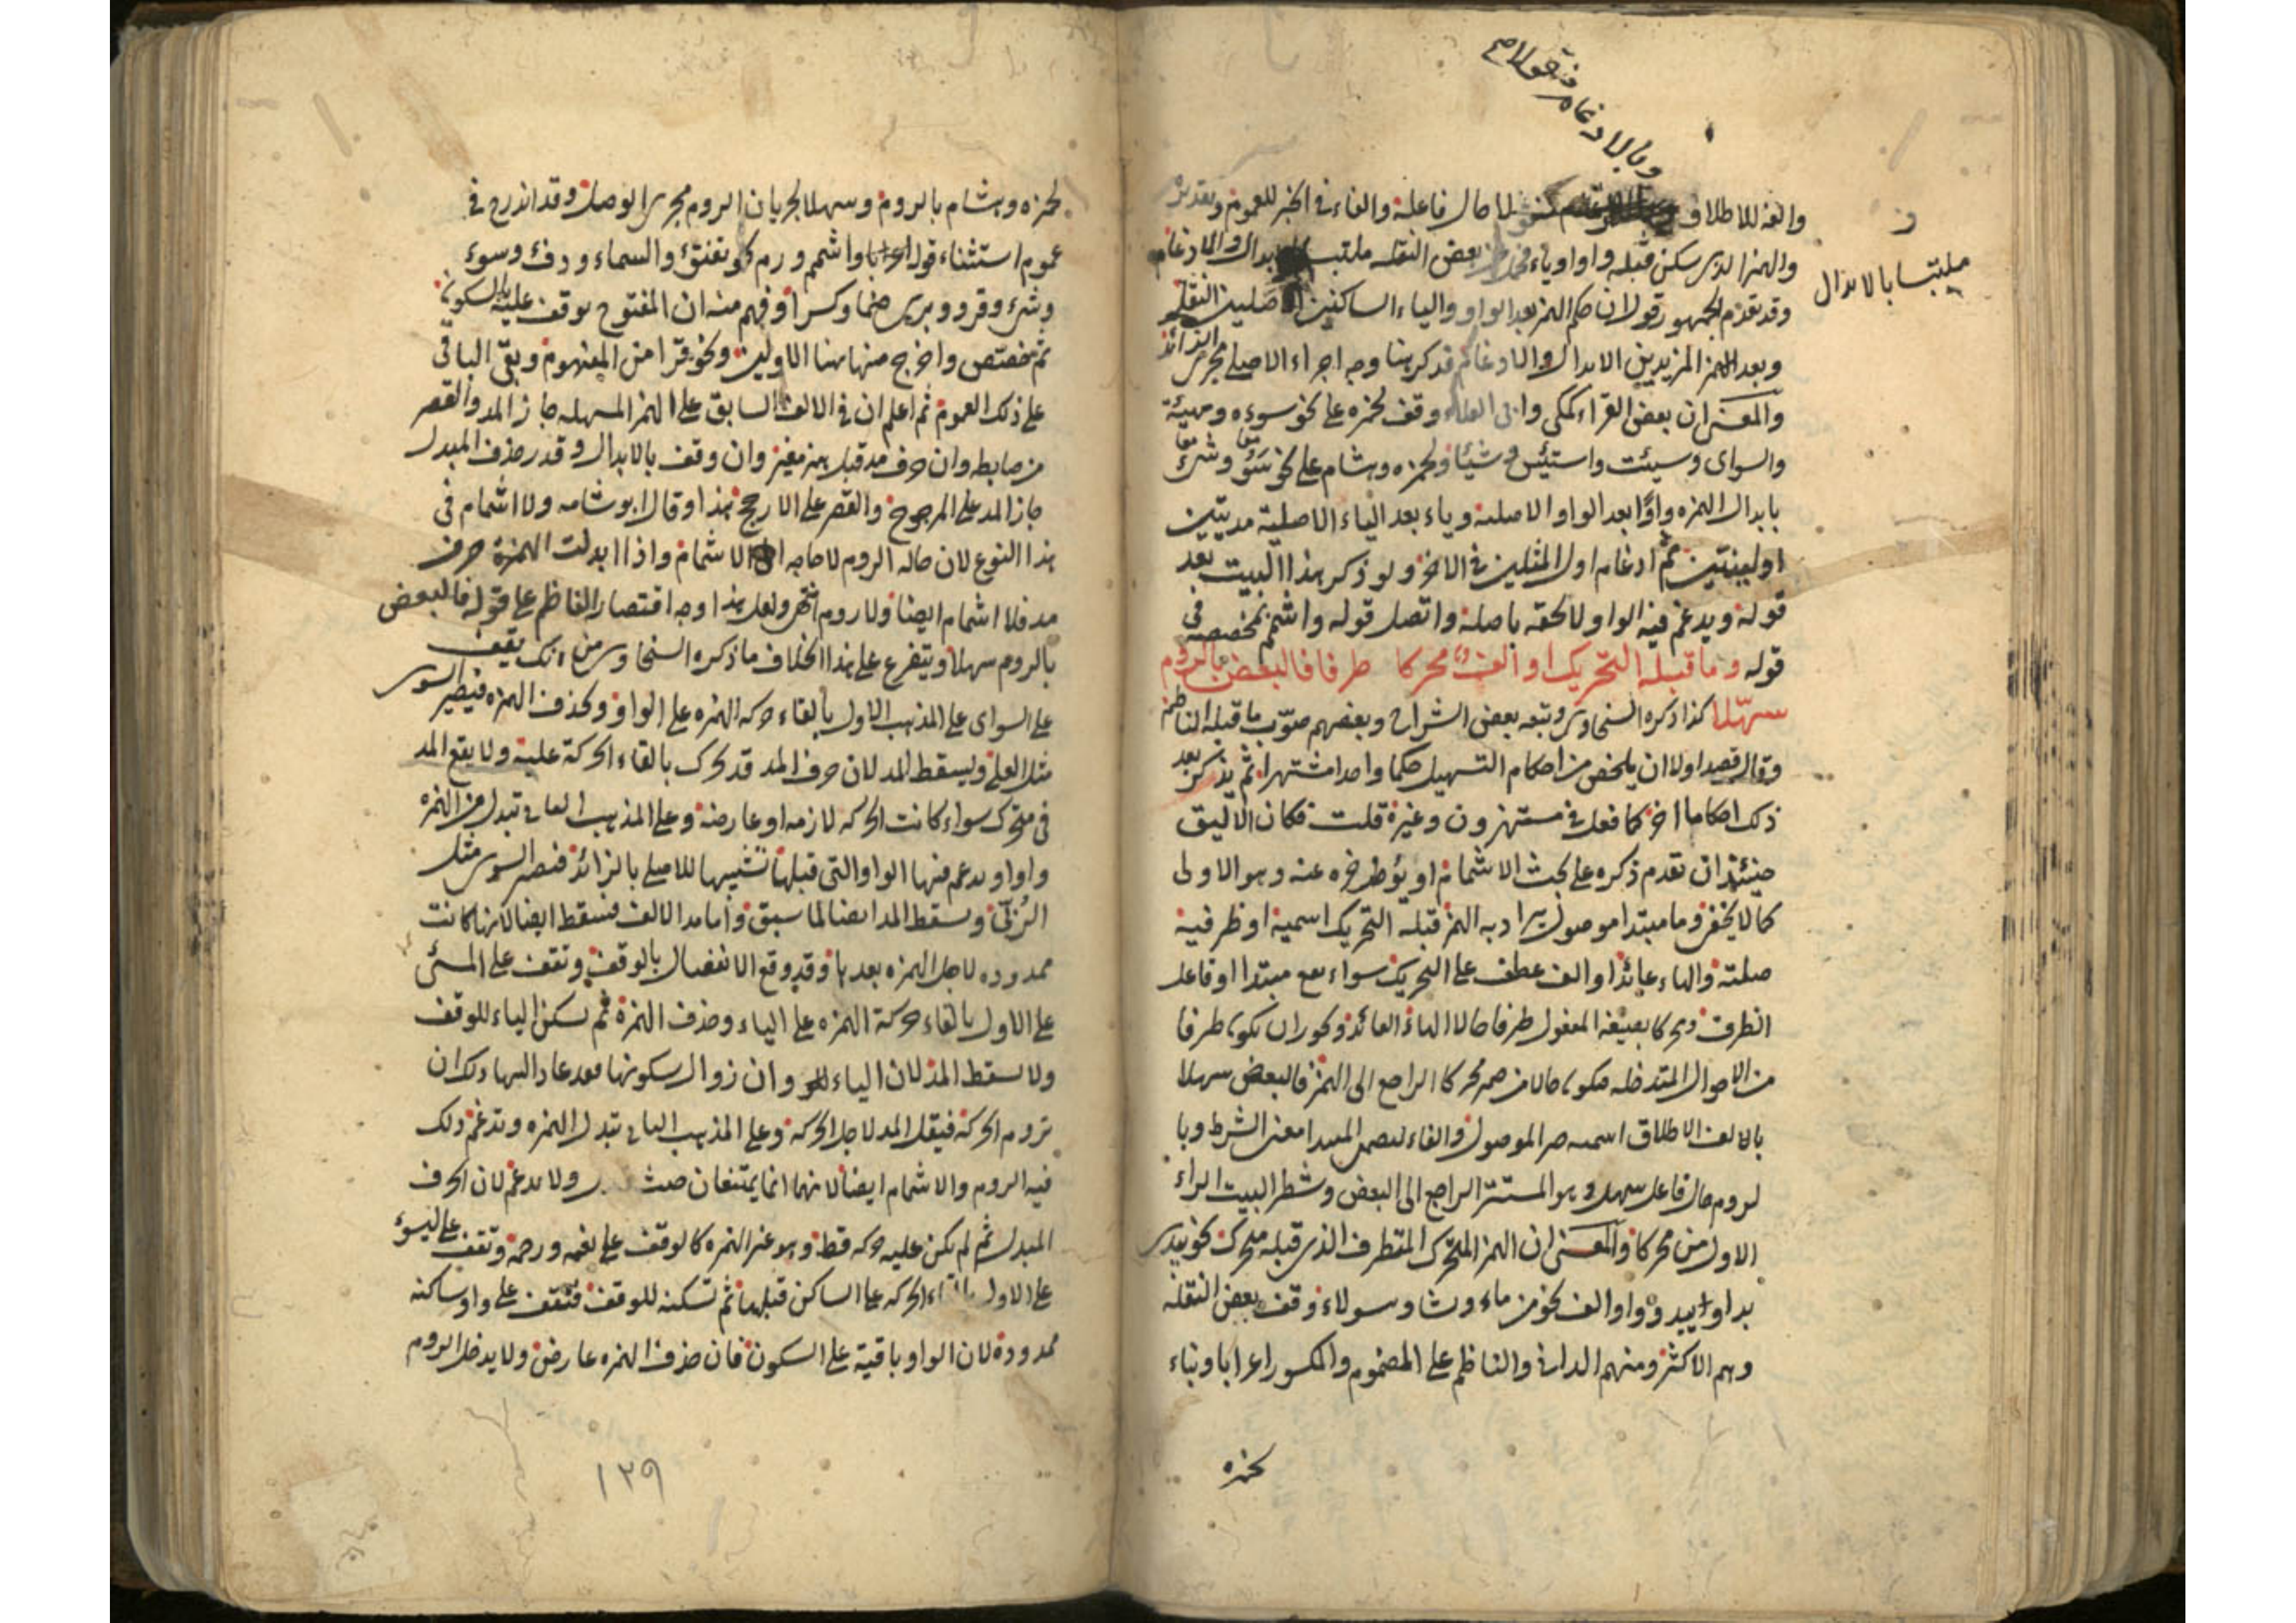 وبالادغام فنقولا م
والفه للاطلاق لما حال فاعله والفاء في الخبر للعموم وتقديره
ف
ملتبسا بالابدال
والهمز الذي سكن قبله واو او ياء بعض النقله ملتبسا والادغام
وقد تقدم للجمهور قولا ان حكم الهمز بعد الواو والياء الساكنين الاصليين النقل
وبعد المزيدين الابدال والادغام فذكر هنا وجه اجراء الاصلي مجرى الزائد
والمعنى ان بعض القراء كمكي وابي العلاء وقف لحمزه على نحو سوءه وهيئة
والسوأى وسيئت واستيئس وشيئا ولحمزه وهشام على نحو سوء وشئ
بابدال الهمزه واوا بعد الواو الاصلية وياء بعد الياء الاصلية مديتين
او لينتين ثم ادغام اول المثلين في الاخر ولو ذكر هذا البيت بعد
قوله ويدغم فيه الواو لالحقه باصله واتصل قوله واشمم بمخصصه في
قوله وما قبله التحريك او الف محركا طرفا فالبعض بالروم
سهلا كذا ذكره السخاوي وتبعه بعض الشراح وبعضهم صوب ما قبله الناظم
وقال قصد اولا ان يلخص من احكام التسهيل حكما واحدا اشتهر ثم يذكر بعد
ذلك احكاما اخر كما فعل في مستهزون وغيره قلت فكان الاليق
حينئذ ان تقدم ذكره على بحث الاشمام او يؤخره عنه وهو الاولى
كما لا يخفى وما مبتدا موصول يراد به الهمز قبله التحريك اسمية او ظرفية
صلته والهاء عائد او الف عطف على التحريك سواء مبتدا او فاعل
الظرف ومحركا بصيغة المفعول طرفا حالا الهاء العائد ويجوز ان يكون طرفا
من الاحوال المتداخله فيكون حالا من ضمير محركا الراجع الى الهمز فالبعض سهلا
بالالف الاطلاق اسميه خبر الموصول والفاء لتضمن المبتدا معنى الشرط وبا
لروم حال فاعل سهل وهو المستتر الراجع الى البعض وشطر البيت الراء
الاول من محركا والمعنى ان الهمز المتحرك المتطرف الذي قبله متحرك نحو يبدئ
بدا و او الف نحو من ماء وشا وسولاء وقف بعض النقلة
وهم الاكثر ومنهم الداني والناظم على المضموم والمكسور اعرابا وبناء
لحمزه
لحمزه وهشام بالروم وسهلا لجريان الروم مجرى الوصل وقد اندرج في
عموم استثناء قوله واشمم ورم نحو تفتؤ والسماء ودفء وسوء
وشئ وقروء وبرئ ضما وكسرا وفهم منه ان المفتوح يوقف عليه بالسكون
ثم خصص واخرج منها هنا الاولين ونحو قرا من المفهوم وبقي الباقي
على ذلك العموم ثم اعلم ان في الالف السابق على الهمز المسهله جاز المد والقصر
من ضابطه وان حرف مد قبل همز مغير وان وقف بالابدال وقدر حذف المبدل
جاز المد على المرجوح والقصر على الارجح هذا وقال ابو شامه ولا اشمام في
هذا النوع لان حاله الروم لا حاجه الى الاشمام واذا ابدلت الهمزة حرف
مد فلا اشمام ايضا ولا روم انتهى ولعل هذا وجه اقتصار الناظم على قوله فالبعض
بالروم سهلا ويتفرع على هذا الخلاف ما ذكره السخاوي من انك تقف
على السوأى على المذهب الاول بالقاء حركة الهمزه على الواو وتحذف الهمزه فيصير السوى
مثل العلى ويسقط المد لان حرف المد قد تحرك بالقاء الحركة عليه ولا يقع المد
في متحرك سواء كانت الحركه لازمه او عارضه وعلى المذهب الثاني تبدل من الهمزه
واوا وتدغم فيها الواو التي قبلها تشبيها للاصلي بالزائد فتصير السوى مثل
الزنى وسقط المد ايضا لما سبق واما مد الالف فسقط ايضا لانها كانت
ممدوده لاجل الهمزه بعدها وقد وقع الانفصال بالوقف وتقف على المسئ
على الاول بالقاء حركة الهمزه على الياء وحذف الهمزة ثم تسكن الياء للوقف
ولا يسقط المد لان الياء وان زوال سكونها فقد عاد اليها وذلك ان
تروم الحركة فيقل المد لاجل الحركه وعلى المذهب الثاني تبدل الهمزه وتدغم ولك
فيه الروم والاشمام ايضا لانهما انما يمتنعان حيث ولا يدغم لان الحرف
المبدل ثم لم يكن عليه حركه قط وهو غير الهمزه كالوقف على نعمه ورحمة وتقف على ليسوء
على الاول بالقاء الحركه على الساكن قبلها ثم تسكنه للوقف فتقف على واو ساكنه
ممدودة لان الواو باقية على السكون فان حذف الهمزه عارض ولا يدخل الروم
١٣٩